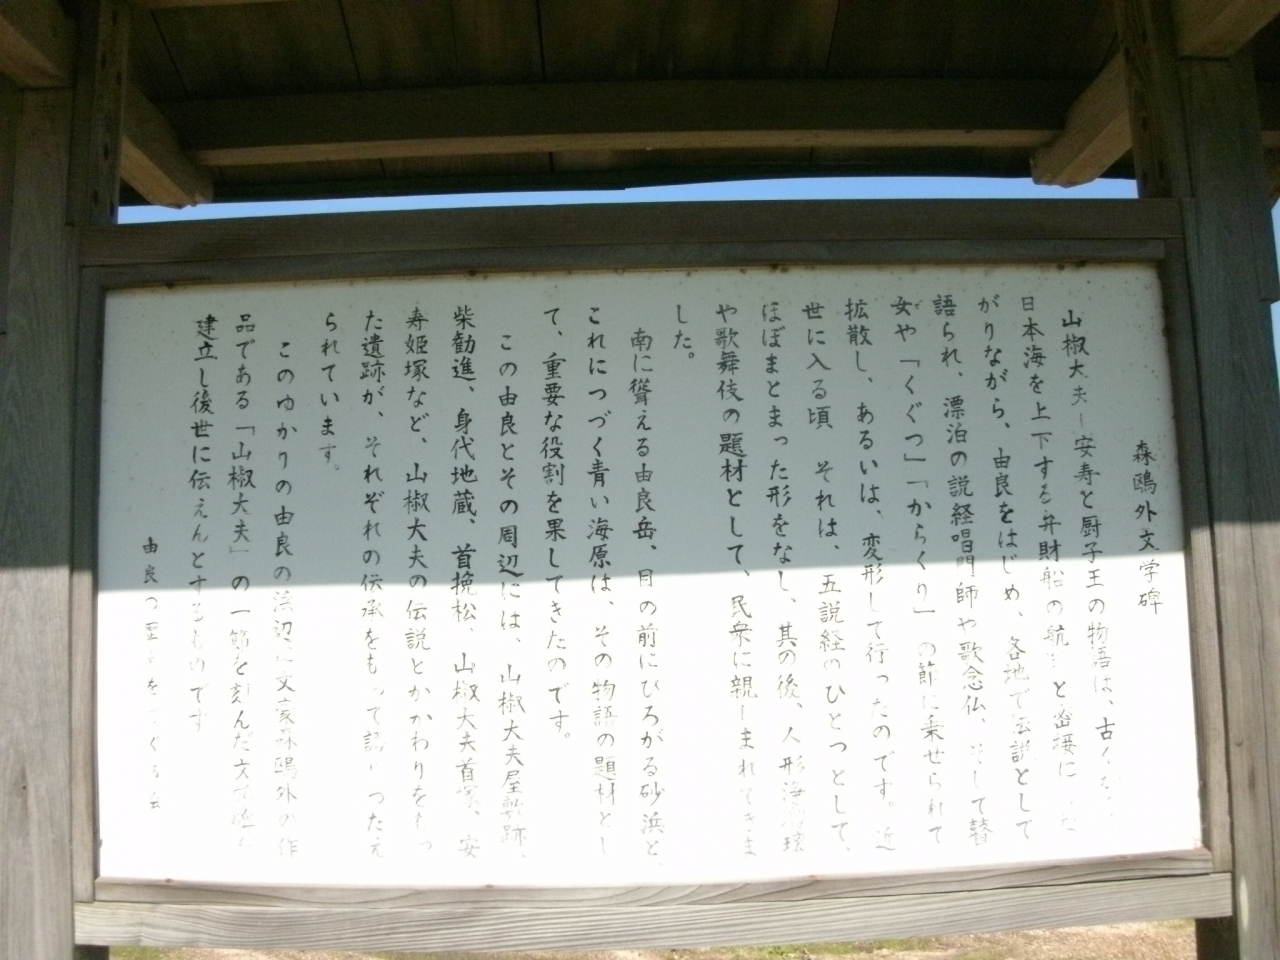 森鴎外文学碑
山椒大夫―安寿と厨子王の物語は、古く
日本海を上下する弁財船の航 と密接に
がりながら、由良をはじめ、各地で伝説として
語られ、漂泊の説経唱門師や歌念仏、そして瞽
女や「くぐつ」「からくり」の節に乗せられて
拡散し、あるいは、変形して行ったのです。近
世に入る頃 それは、五説経のひとつとして、
ほぼまとまった形をなし、其の後、人形浄瑠璃
や歌舞伎の題材として、民衆に親しまれてきま
した。
南に聳える由良岳、目の前にひろがる砂浜と、
これにつづく青い海原は、その物語の題材とし
て、重要な役割を果してきたのです。
この由良とその周辺には、山椒大夫屋敷跡、
柴勧進、身代地蔵、首挽松、山椒大夫首塚、安
寿姫塚など、山椒大夫の伝説とかかわりをもっ
た遺跡が、それぞれの伝承をもって語りつたえ
られています。
このゆかりの由良の浜辺に文豪森鴎外の作
品である「山椒大夫」の一節を刻んだ文学碑を
建立し後世に伝えんとするものです
由良の歴史をさぐる会